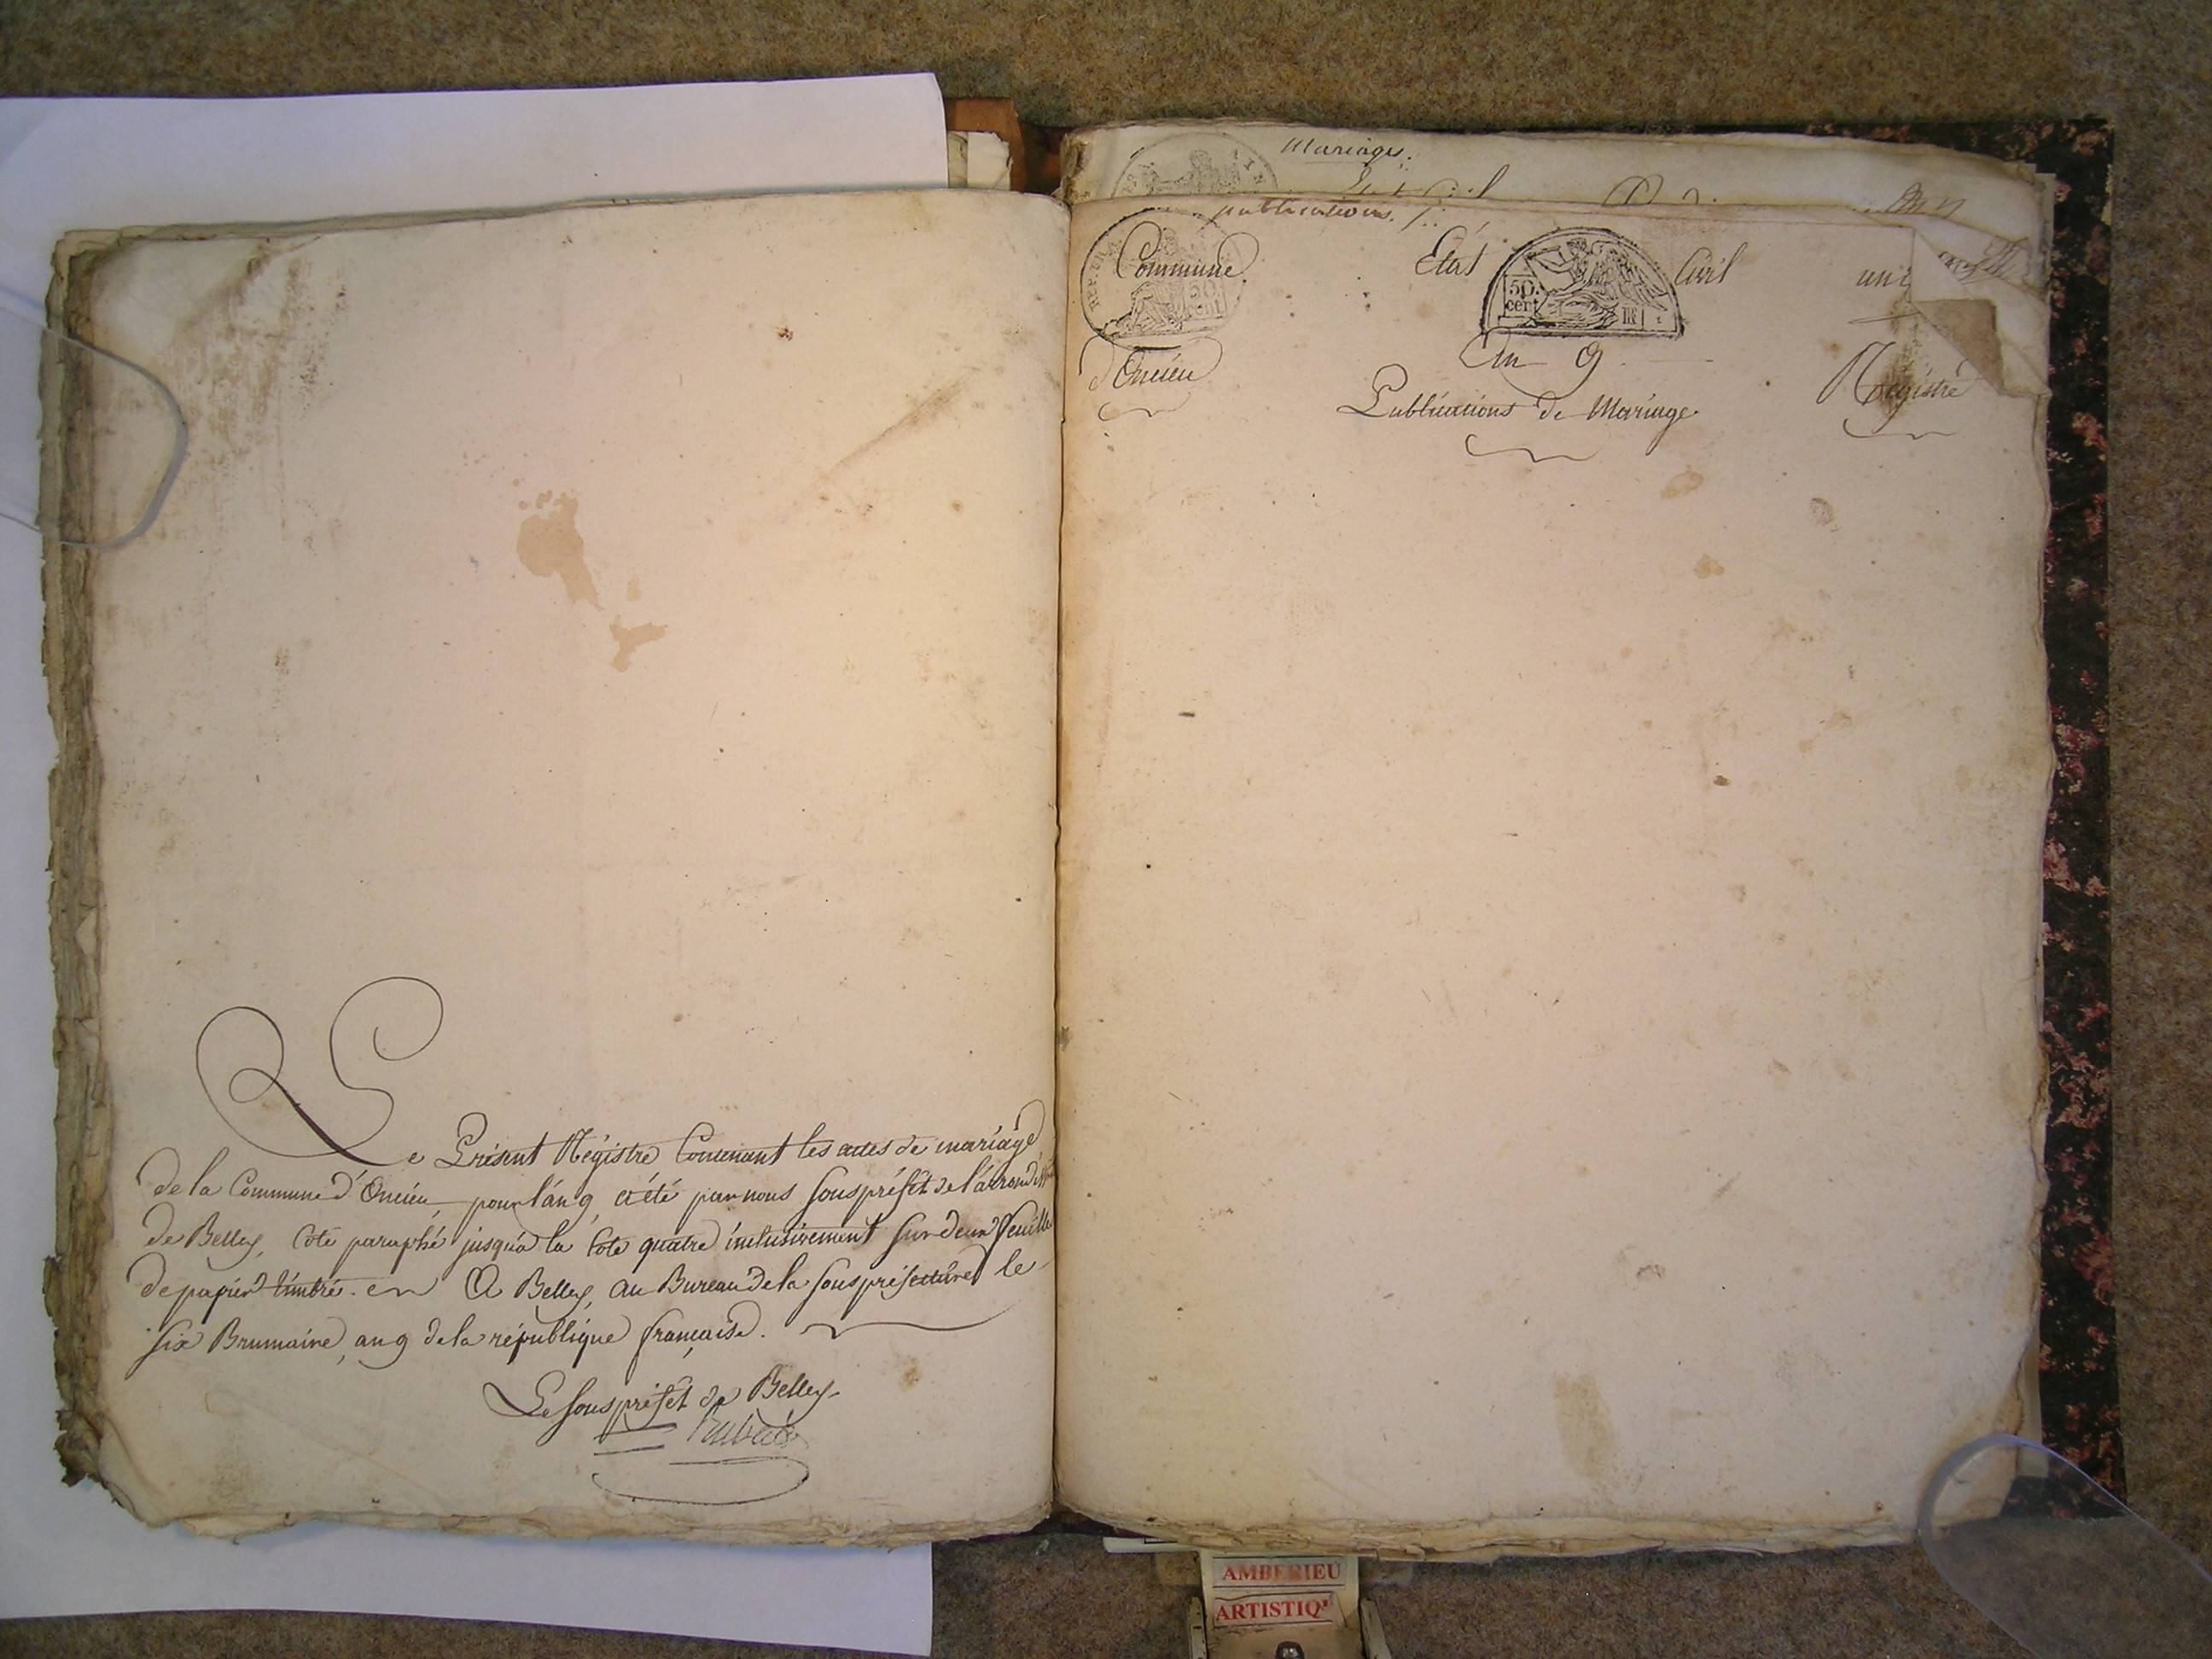 Le Présent Régistre Contenant les actes de mariage
de la Commune d'Oncieu, pour l'an 9, a été par nous sous préfet de l'arrondisst
de Belley, Coté paraphé jusqu'a la Cote quatre inclusivement sur deux feuille
de papier timbré. en A Belley, au Bureau de la sous préfecture le
six Brumaire, an 9 de la république française.
Le sous préfet de Belley
Mariages.
publications.
Commune
Etat Civil
d'Oncieu
50.
cent
An 9
Régistre
Publications de Mariage
AMBERIEU
ARTISTIQ